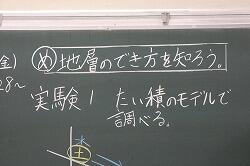 金)
28〜
め 地層のでき方を知ろう。
実験1 たい積のモデルで
調べる。
土